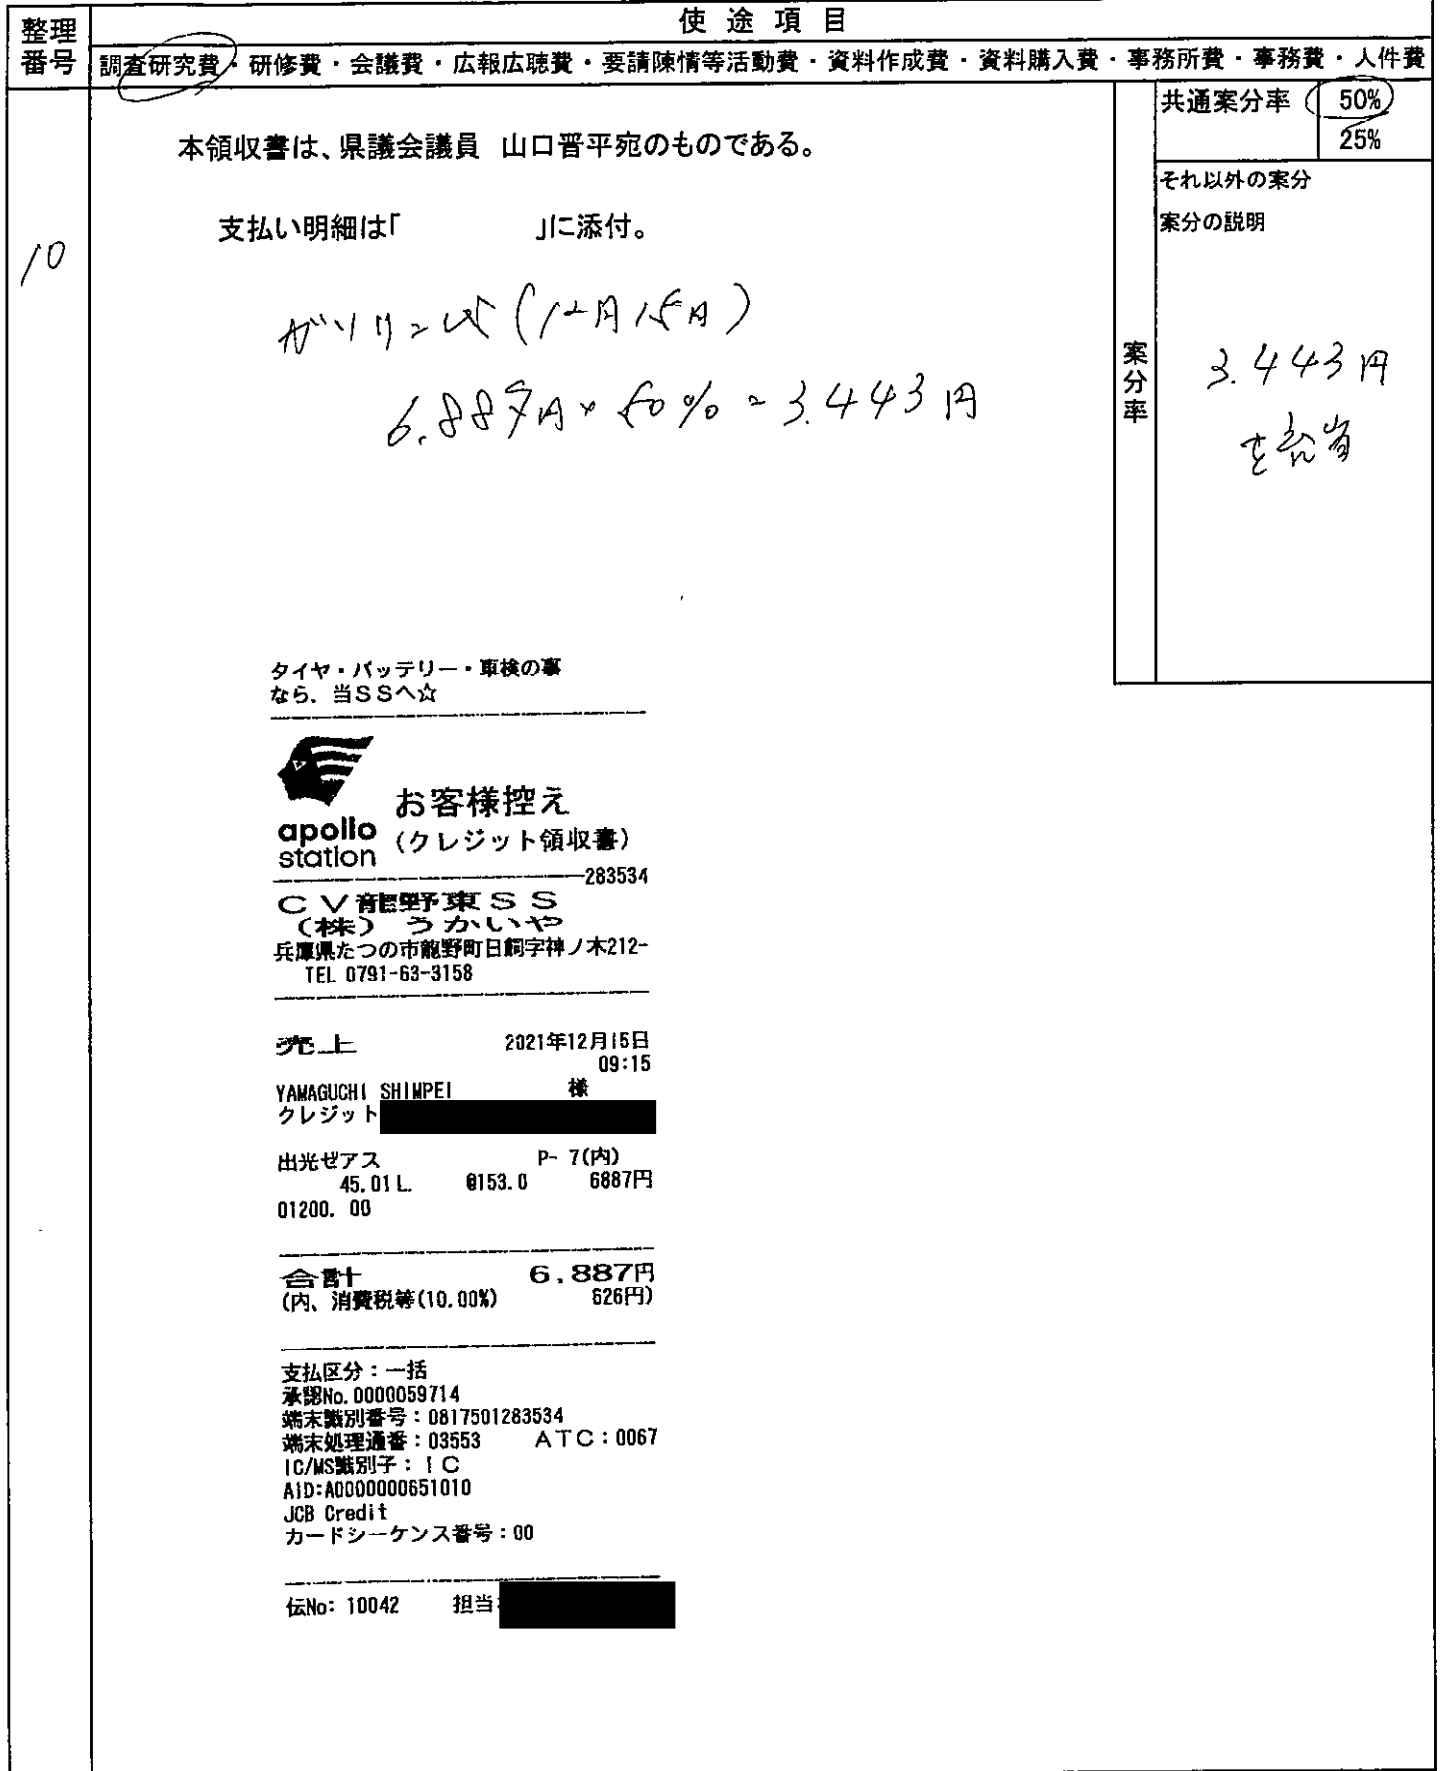 整理
番号
使途項目
調査研究費・研修費・会議費・広報広聴費・要請陳情等活動費・資料作成費・資料購入費・事務所費・事務費・人件費
10
本領収書は、県議会議員 山口晋平宛のものである。
支払い明細は「 」に添付。
ガソリン代(12月15日)
6.887円×50%=3.443円
共通案分率 50%
25%
それ以外の案分
案分の説明
案分率
3.443円
を充当
タイヤ・バッテリー・車検の事
なら、当SSへ☆
apollo
station
お客様控え
(クレジット領収書)
283534
CV龍野東SS
(株) うかいや
兵庫県たつの市龍野町日飼字神ノ木212-
TEL 0791-63-3158
売上 2021年12月15日
09:15
YAMAGUCHI SHIMPEI 様
クレジット
出光ゼアス P- 7(内)
45.01L. @153.0 6887円
01200. 00
合計 6.887円
(内、消費税等(10.00%) 626円)
支払区分：一括
承認No.0000059714
端末識別番号：0817501283534
端末処理通番：03553 ATC：0067
IC/MS識別子：IC
AID:A0000000651010
JCB Credit
カードシーケンス番号：00
伝No: 10042 担当: